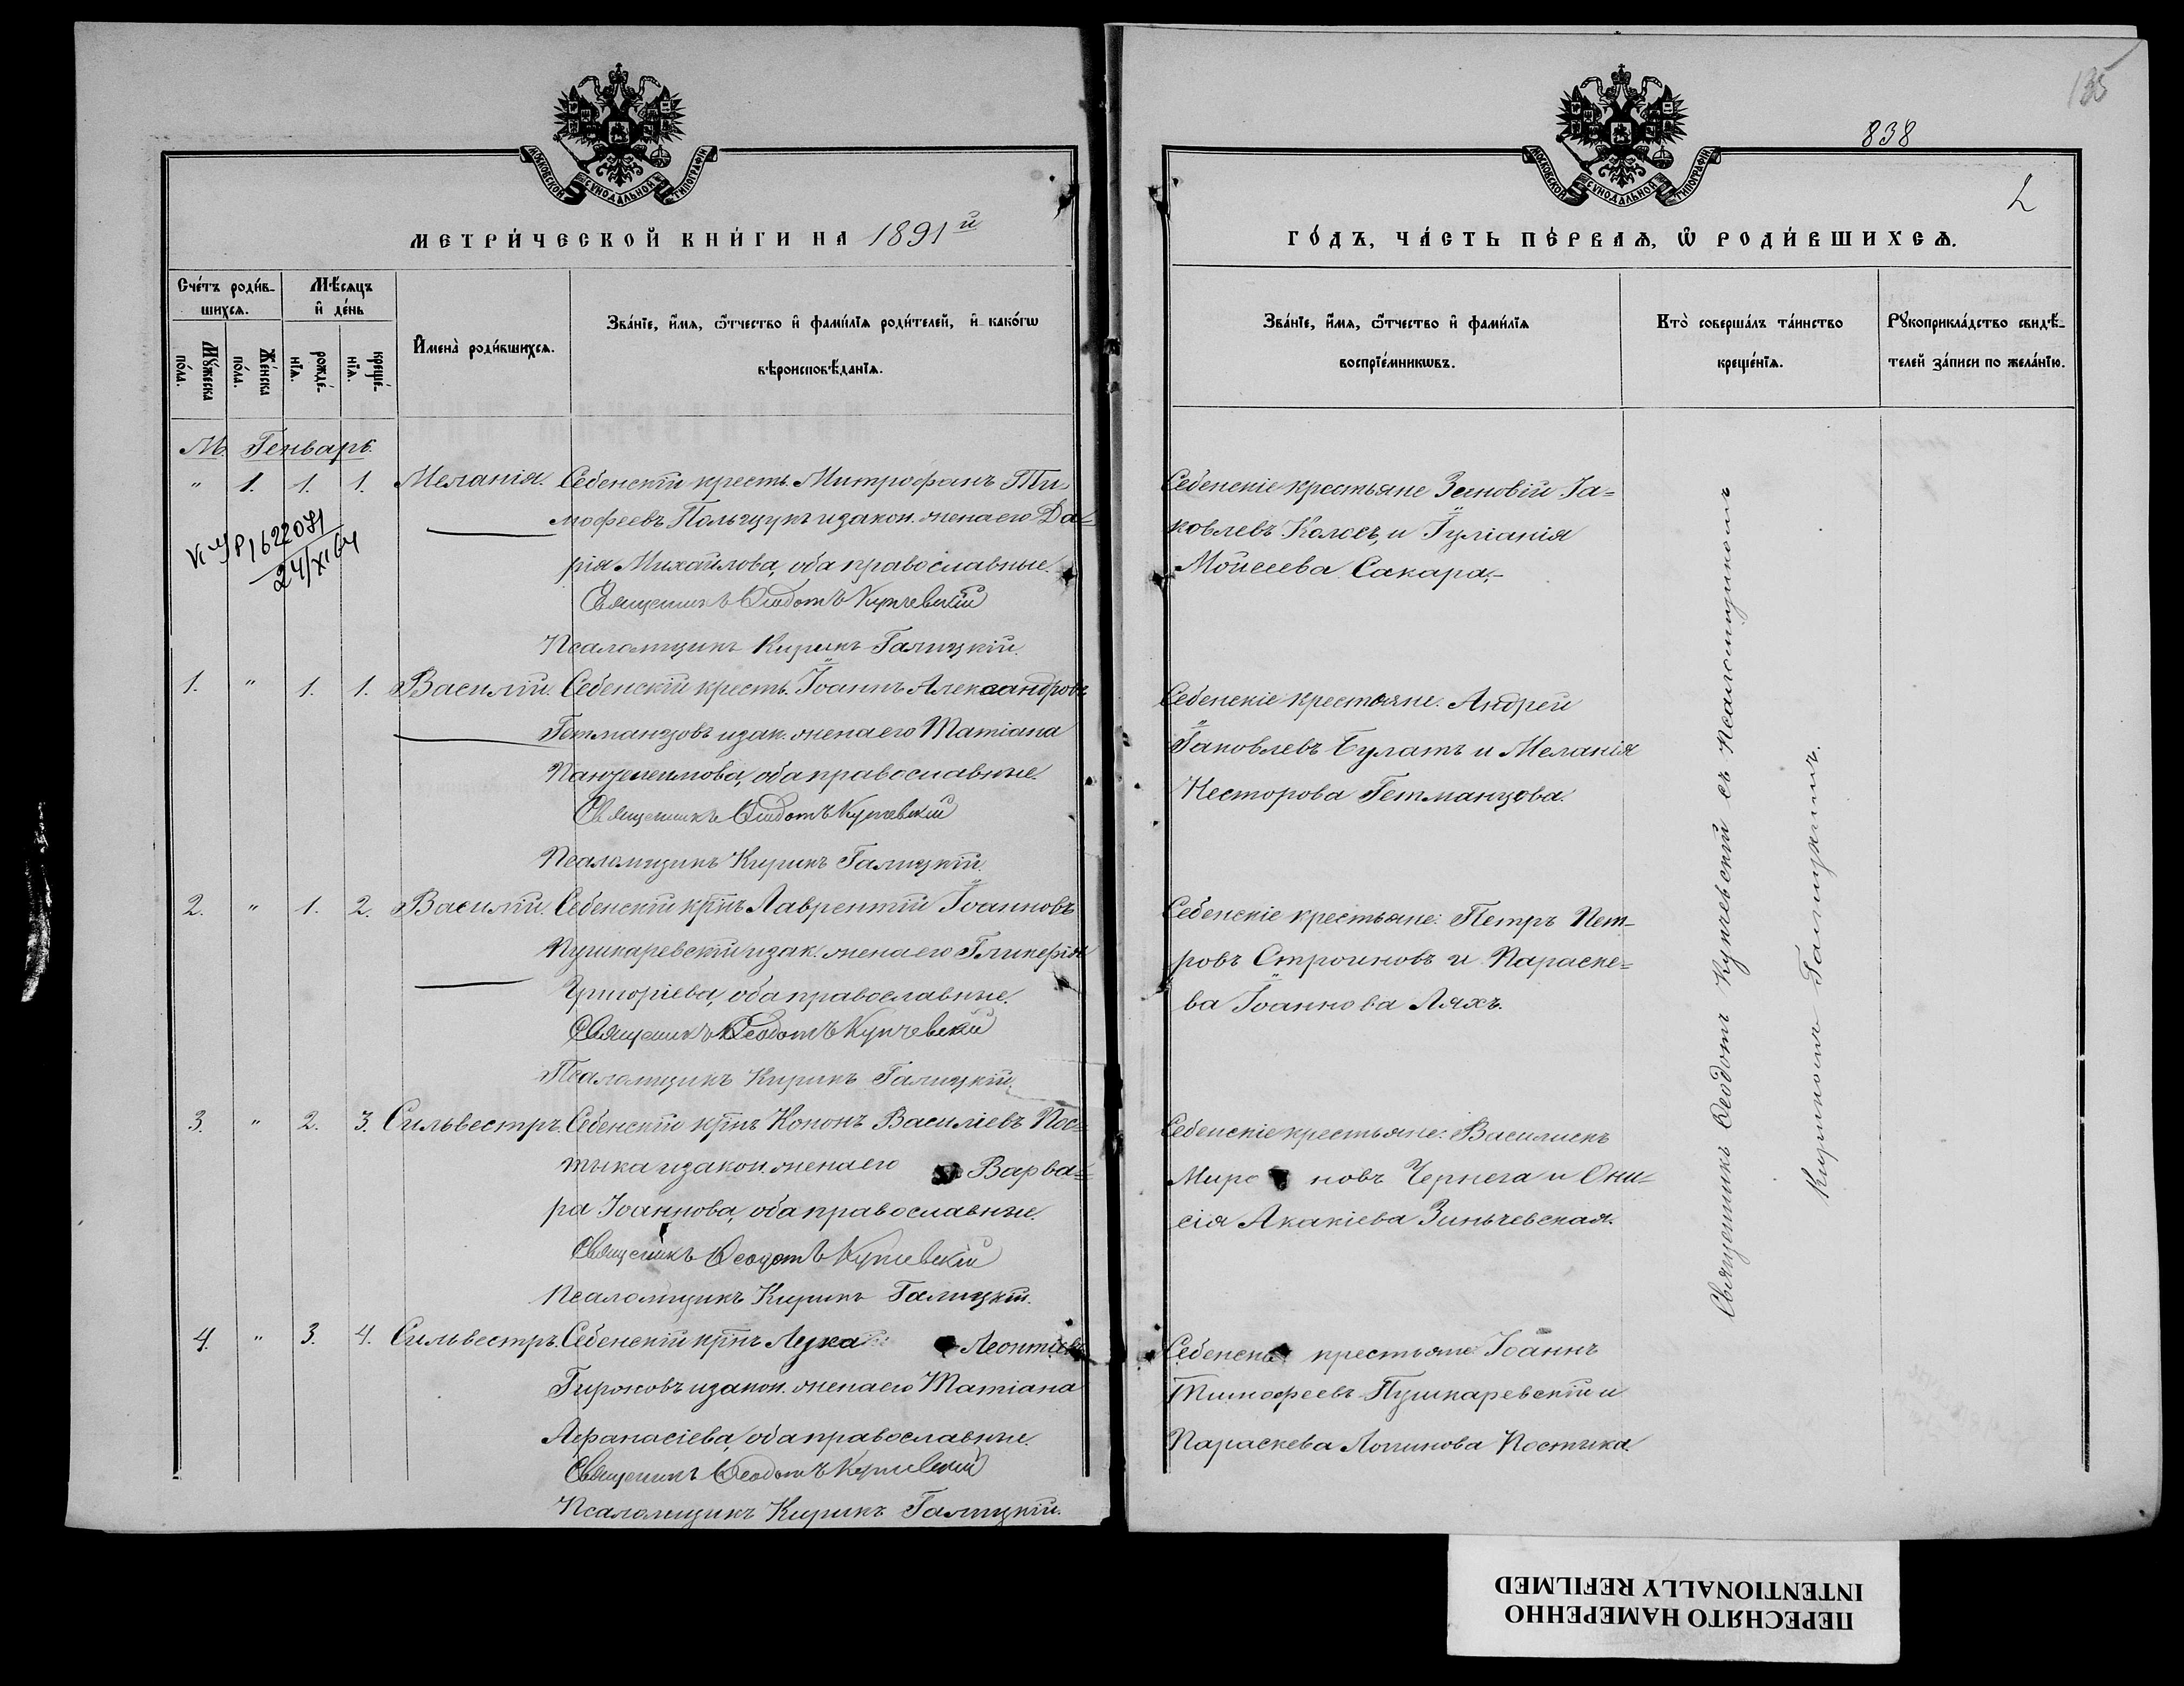 МОСКОВСКОЙ СѴНОДАЛЬНОЙ ТИПОГРАФІИ
МЕТРИ́ЧЕСКОЙ КНИ́ГИ НА 1891й
Сче́тъ роди́в-
шихсѧ.
Мѣ́сѧцъ
и҆ де́нь
Мꙋ́жеска
по́ла.
Же́нска
по́ла.
рожде́-
нїѧ.
креще́-
нїѧ.
И҆мена̀ роди́вшихсѧ.
Зва́нїе, и҆́мѧ, ѻ҆́тчество и҆ фами́лїѧ роди́телей, и҆ како́гѡ
вѣроисповѣ́данїѧ.
М. Генварь.
" 1. 1. 1. Меланія. Себенскій кресть. Митрофанъ Ти-
мофеевъ Польщукъ и закон. жена его Да-
рія Михайлова, оба православные.
Священникъ Ѳеодотъ Купчевскій
Псаломщикъ Кирикъ Галицкій.
VI-УР 1622071
24/XI 64
1. " 1. 1. Василій. Себенскій кресть. Іоаннъ Александровъ
Гетманцовъ и зак. жена его Татіана
Панделеимова, оба православные.
Священникъ Ѳеодотъ Купчевскій
Псаломщикъ Кирикъ Галицкій.
2. " 1. 2. Василій. Себенскій крнъ Лаврентій Іоанновъ
Пушкаревскій и зак. жена его Гликерія
Григоріева, оба православные.
Священникъ Ѳеодотъ Купчевскій
Псаломщикъ Кирикъ Галицкій.
3. " 2. 3. Сильвестръ. Себенскій крнъ Кононъ Василіевъ Пос-
тыка и закон. жена его Варва-
ра Іоаннова, оба православные.
Священикъ Ѳеодотъ Купчевскій
Псаломщикъ Кирикъ Галицкій.
4. " 3. 4. Сильвестръ. Себенскій крнъ Лука Леонтіевъ
Гироновъ и закон. жена его Татіана
Афанасіева, оба православные.
Священикъ Ѳеодотъ Купчевскій
Псаломщикъ Кирикъ Галицкій.
135
838
2
МОСКОВСКОЙ СѴНОДАЛЬНОЙ ТИПОГРАФІИ
ГО́ДЪ, ЧА́СТЬ ПЕ́РВАѦ, Ѡ҆ РОДИ́ВШИХСѦ.
Зва́нїе, и҆́мѧ, ѻ҆́тчество и҆ фами́лїѧ
воспрїе́мникѡвъ.
Кто̀ соверша́лъ та́инство
креще́нїѧ.
Рꙋкоприкла́дство свидѣ́-
телей за́писи по жела́нїю.
Себенскіе крестьяне Зеновій Іа-
ковлевъ Колсъ, и Іуліанія
Мойсеева Сакара.
Себенскіе крестьяне: Андрей
Іаковлевъ Булатъ и Меланія
Несторова Гетманцова.
Себенскіе крестьяне: Петръ Пет-
ровъ Строиновъ и Параске-
ва Іоаннова Ляхъ.
Себенскіе крестьяне: Василискъ
Миро новъ Чернега и Они-
сія Акакіева Зиньчевская.
Себенскіе крестьяне: Іоаннъ
Тимофеевъ Пушкаревскій и
Параскева Логинова Постыка.
Священникъ Ѳеодотъ Купчевскій съ Псаломщикомъ
Кирикомъ Галицкимъ.
ПЕРЕСНЯТО НАМЕРЕННО
INTENTIONALLY REFILMED